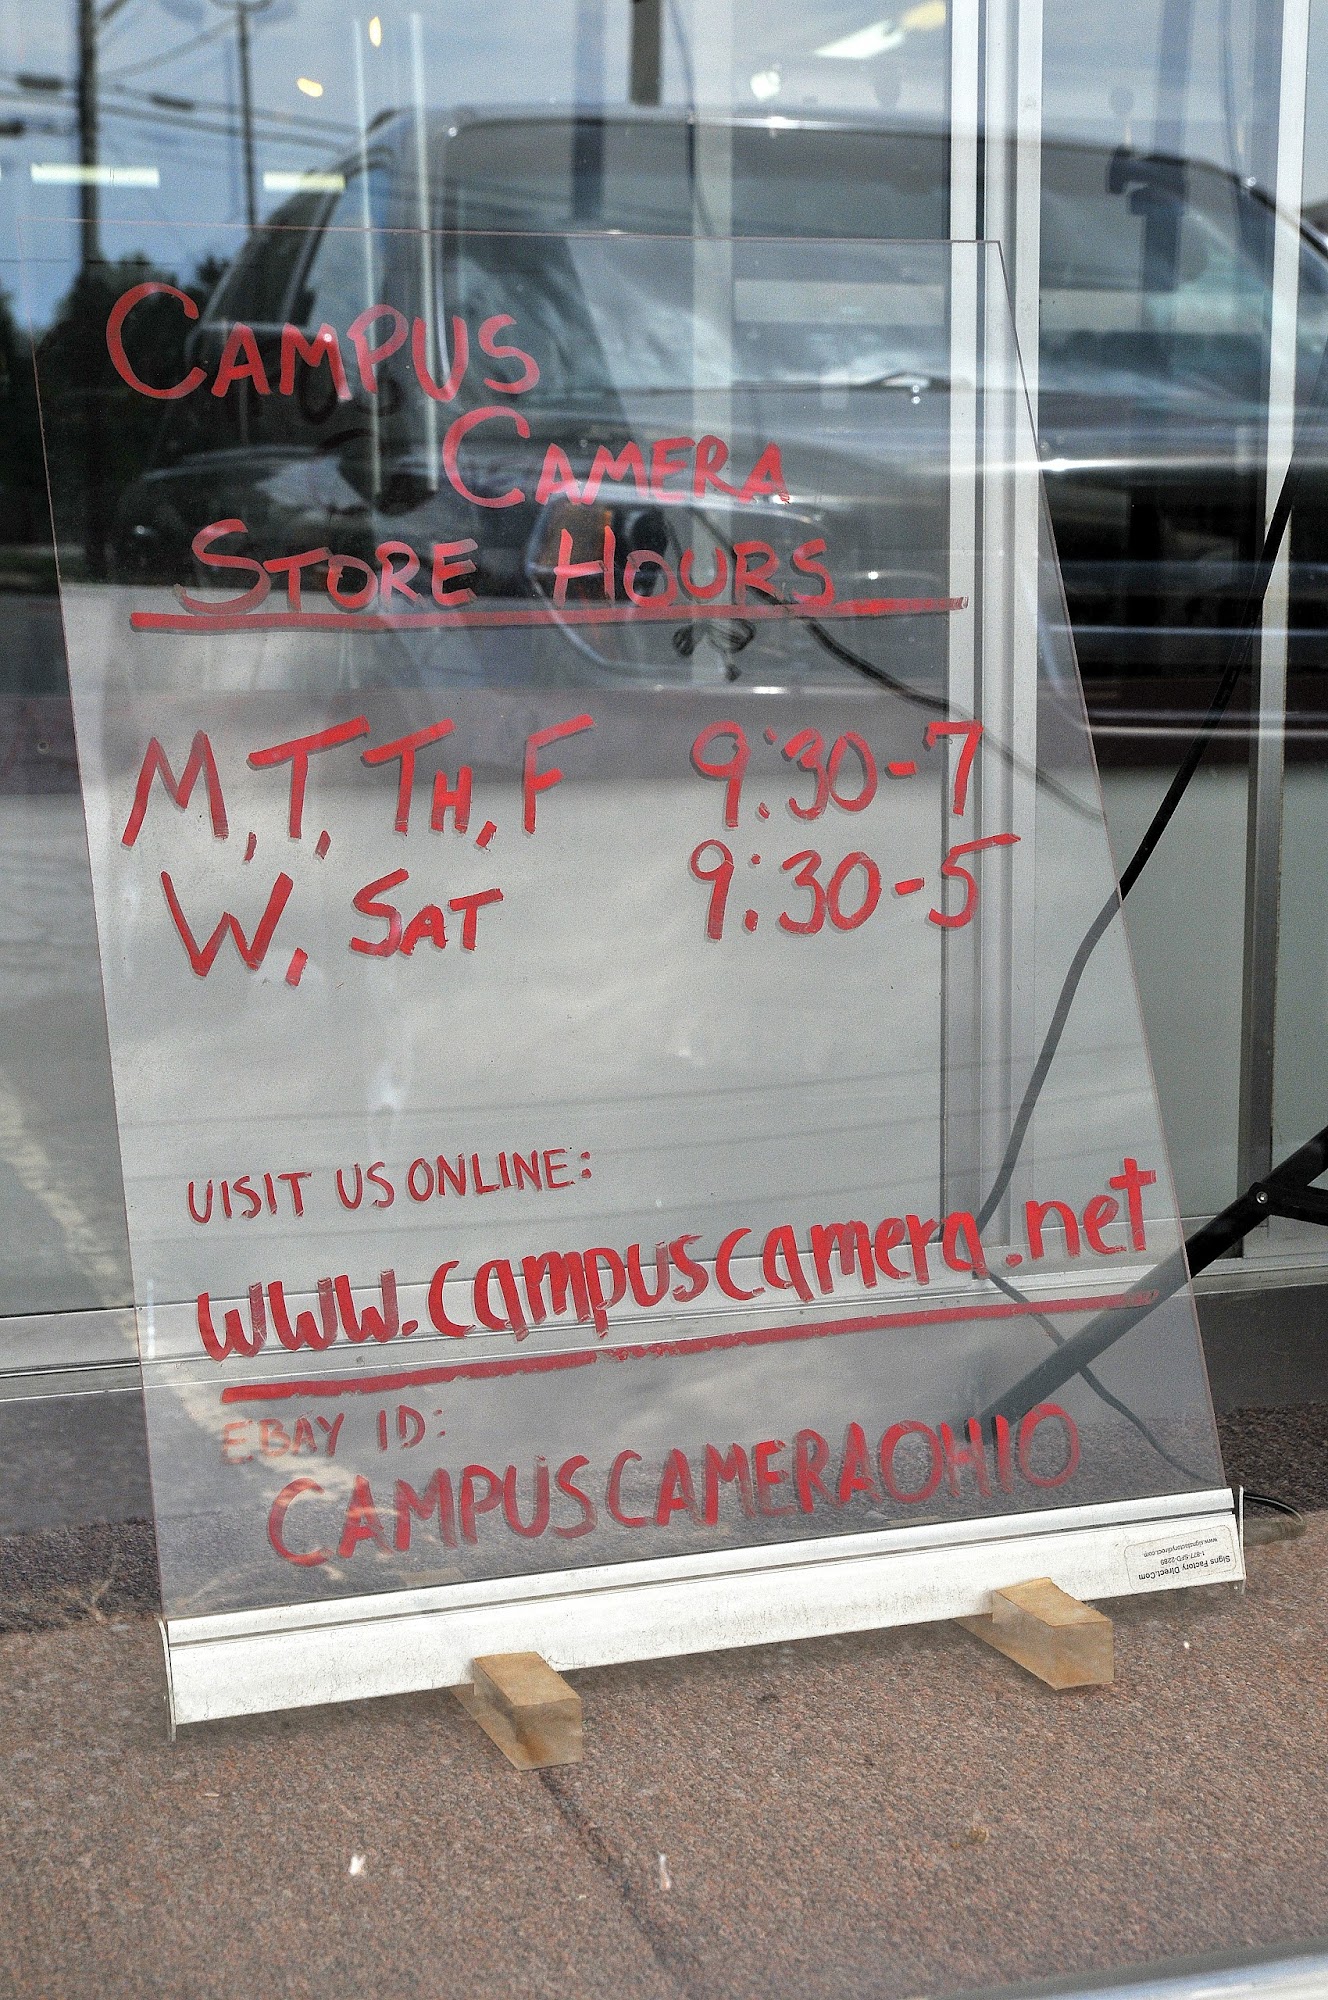 CAMPUS
CAMERA
STORE HOURS
M, T, TH, F 9:30-7
W, SAT 9:30-5
VISIT US ONLINE:
www.campuscamera.net
EBAY ID:
CAMPUSCAMERAOHIO
Signs Factory Direct.Com
1-877-SFD-2289
www.signsfactorydirect.com